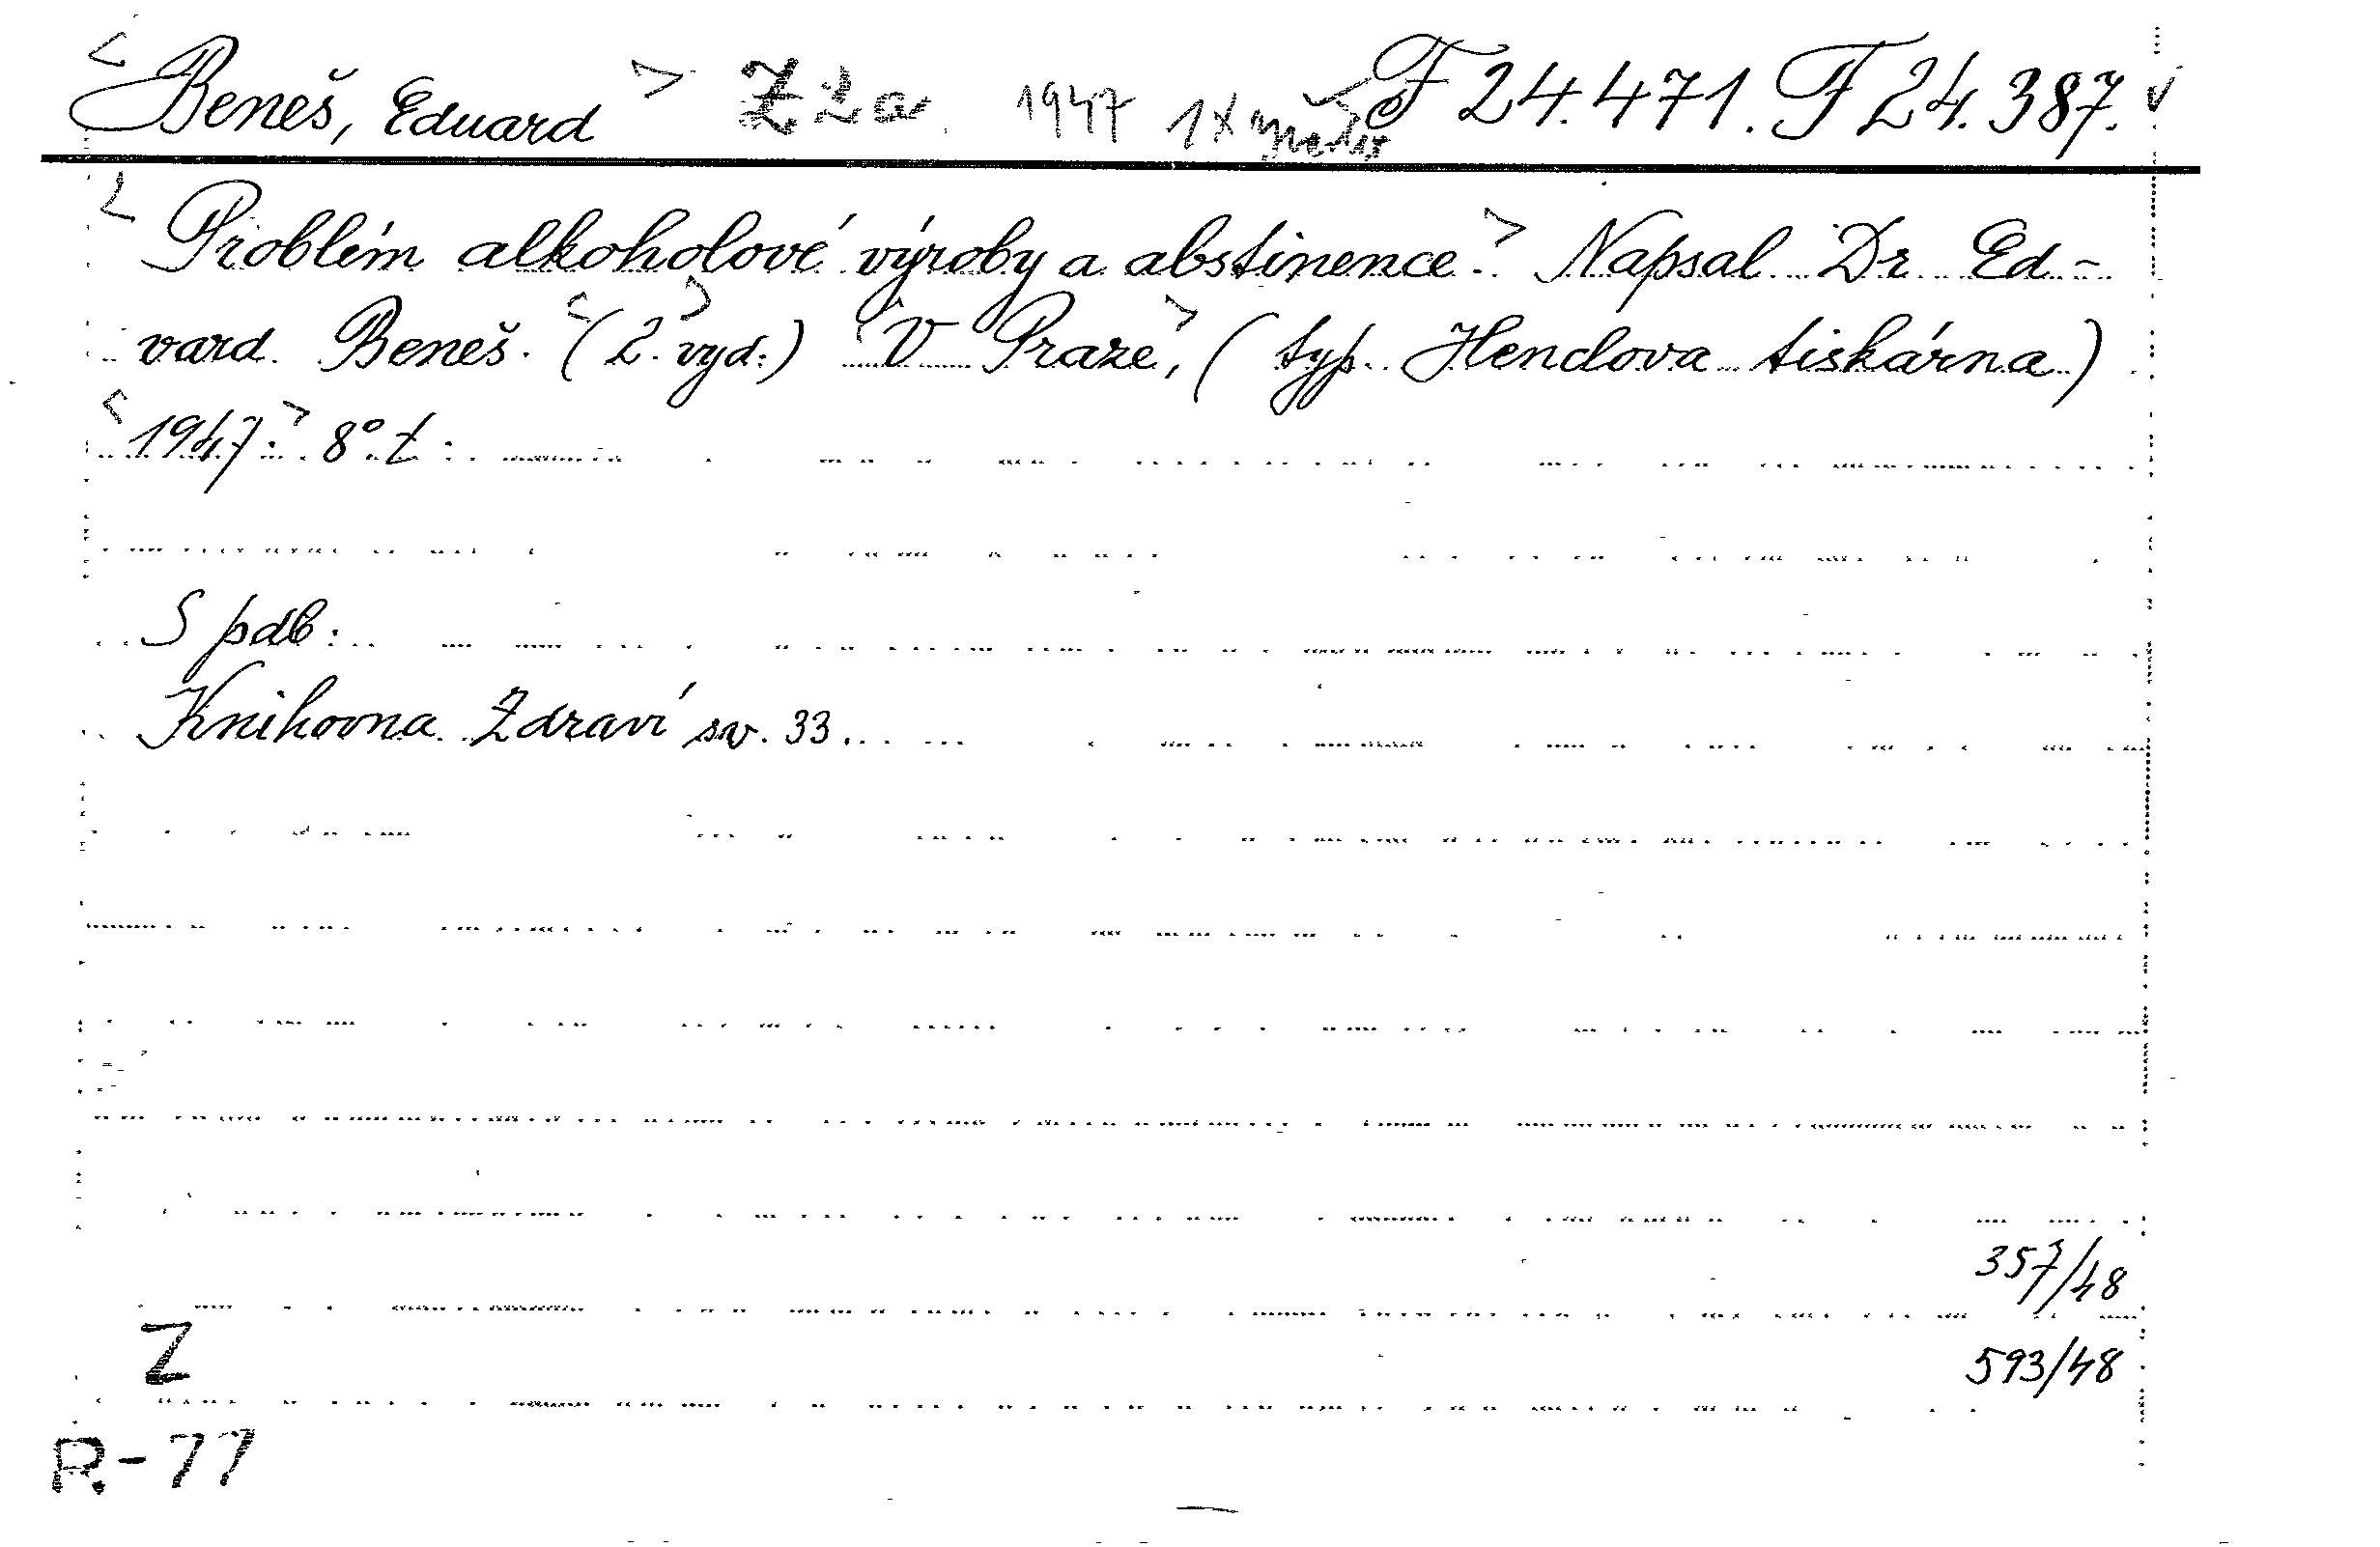 < Beneš, Eduard > Z 2a 1947 1x F 24.471. F 24.387. v
< Problém alkoholové výroby a abstinence. > Napsal Dr Ed-
vard Beneš. <(2. vyd.)> <V Praze,> (typ. Hendlova tiskárna)
<1947.> 8° t.
S pdb.
Knihovna Zdraví sv. 33.
357/48
Z
593/48
R-77